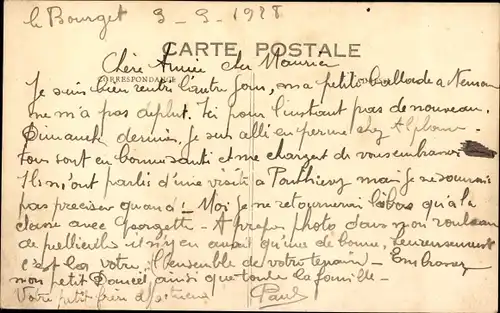 le Bourget 3-9-1928
CARTE POSTALE
Chère Aimée cher Maurice
CORRESPONDANCE
Je suis bien rentré l'autre jour, ma petite ballade a
ne m'a pas déplut. Ici pour l'instant pas de nouveau.
Dimanche dernier, je suis allé en perme chez Alphonse
tous sont en bonne santé et me chargent de vous embrasser
Ils m'ont parlés d'une visite à mais je ne saurais
pas preciser quand! Moi je ne retournerai là bas qu'à la
classe avec Georgette - A propos photo dans mon rouleau
de pellicules il n'y en avait qu'une de bonne, heureusement
c'est la votre, l'ensemble de votre terrain - Embrassez
mon petit Daniel ainsi que toute la famille -
Votre petit frère
Paul